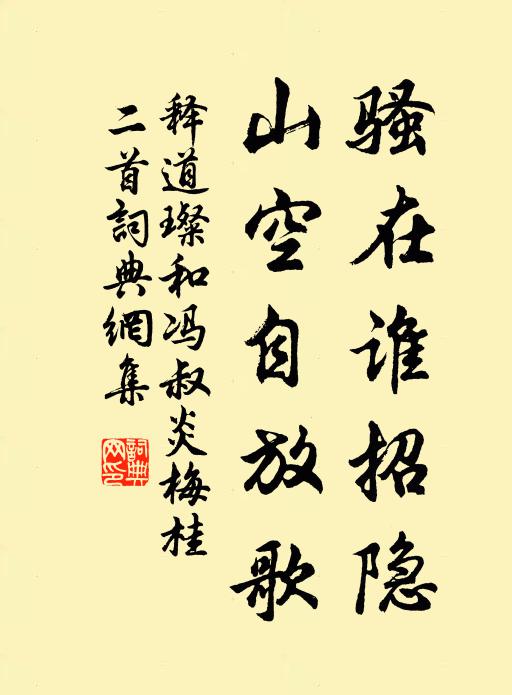 骚在谁招隐
山空自放歌
释道璨和冯叔炎梅桂
二首詞典網集
詞典
网印